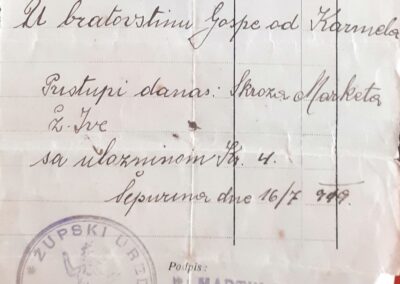 U bratovštinu Gospe od Karmela
Pristupi danas: Skroza Marketa
ž. Ive
sa ulazninom Kr. 4.
Šepurina dne 16/7 919.
Podpis:
* ŽUPSKI URED
MARTIN